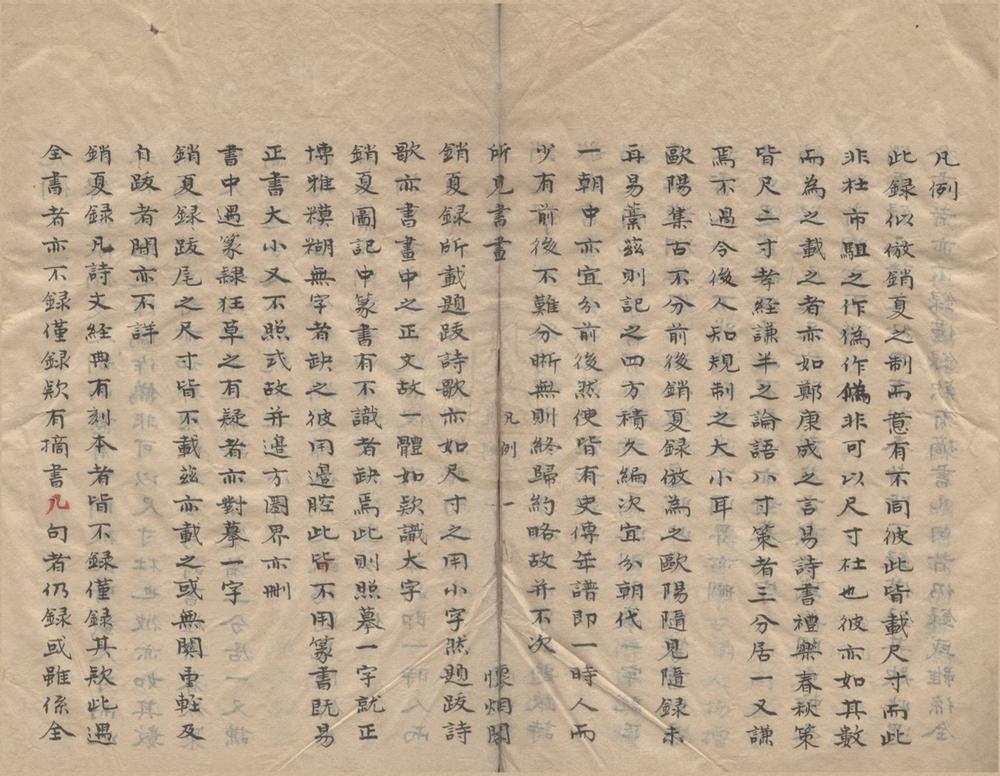 凡例
此録似倣銷夏之制而意有不同彼此皆載尺寸而此
非杜市駔之作為作僞非可以尺寸杜也彼亦如其數
而為之載之者亦如鄭康成之言易詩書禮樂春秋策
皆尺二寸孝經謙半之論語八寸策者三分居一又謙
焉不過令後人知規制之大小耳
歐陽集古不分前後銷夏録倣為之歐陽隨見隨録未
再易藳茲則記之四方積久編次宜分朝代
一朝中亦宜分前後然使皆有史傳年譜即一時人而
少有前後不難分晰無則終歸約略故并不次
所見書畫 凡例 一 懷烟閣
銷夏録所載題跋詩歌亦如尺寸之用小字然題跋詩
歌亦書畫中之正文故一體如欵識大字
銷夏圖記中篆書有不識者缺焉此則照摹一字就正
博雅糢糊無字者缺之彼用邊腔此皆不用篆書既易
正書大小又不照式故并邊方圈界亦刪
書中遇篆隸狂草之有疑者亦對摹一字
銷夏録跋尾之尺寸皆不載茲亦載之或無関重輕及
自跋者間亦不詳
銷夏録凡詩文經典有刻本者皆不録僅録其欵此遇
全書者亦不録僅録欵有摘書几句者仍録或雖係全